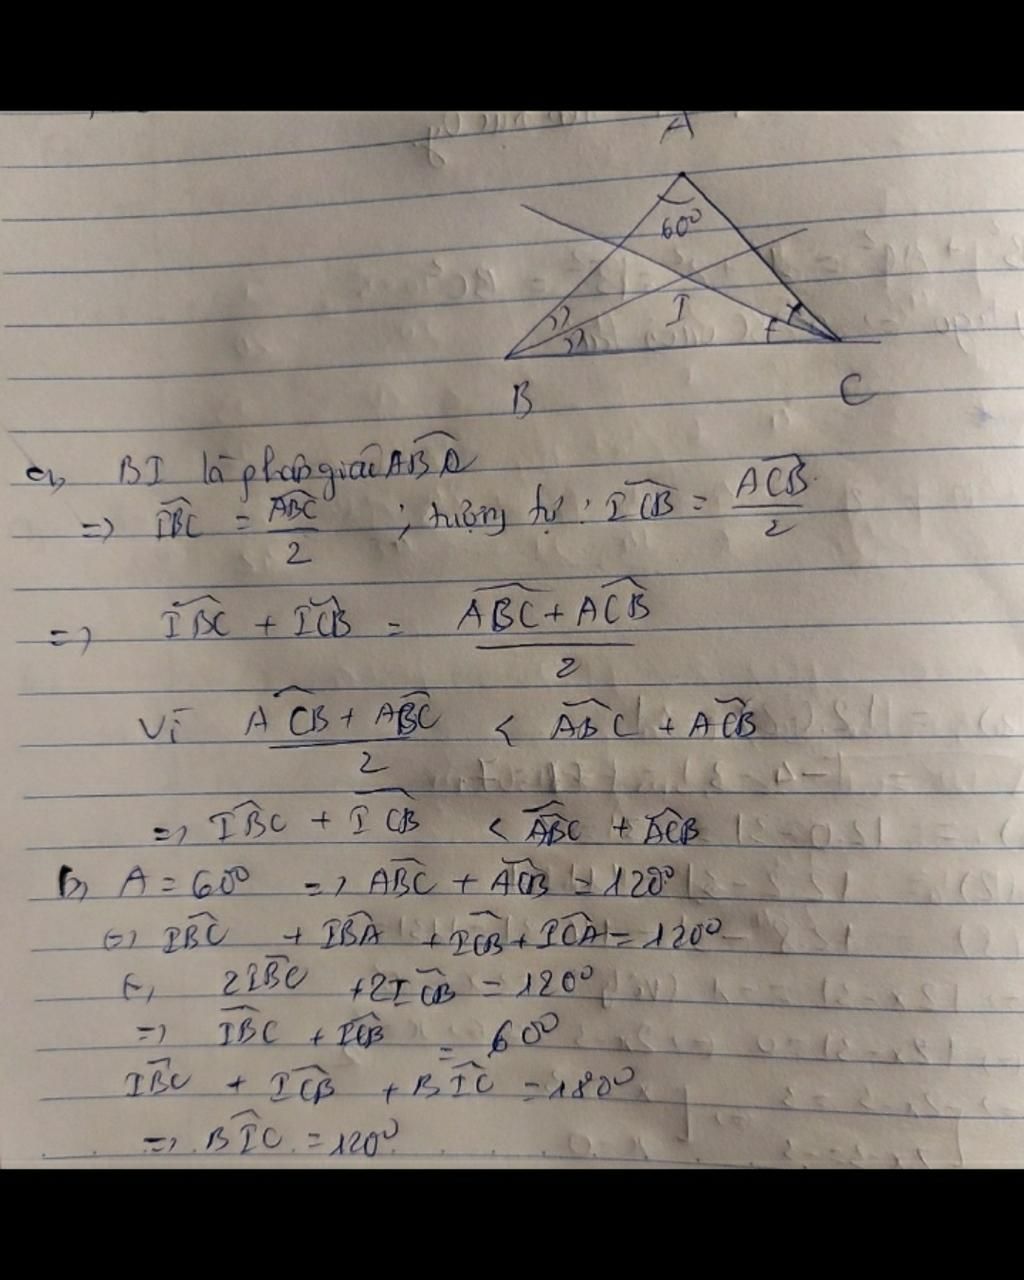 A
60°
I
B
C
a, BI là phân giác ABC
=> IBC = ABC/2 ; tương tự : ICB = ACB/2
=> IBC + ICB = (ABC + ACB)/2
Vì (ACB + ABC)/2 < ABC + ACB
=> IBC + ICB < ABC + ACB
b, A = 60° => ABC + ACB = 120°
(=) IBC + IBA + ICB + ICA = 120°
2IBC + 2ICB = 120°
=> IBC + ICB = 60°
IBC + ICB + BIC = 180°
=> BIC = 120°